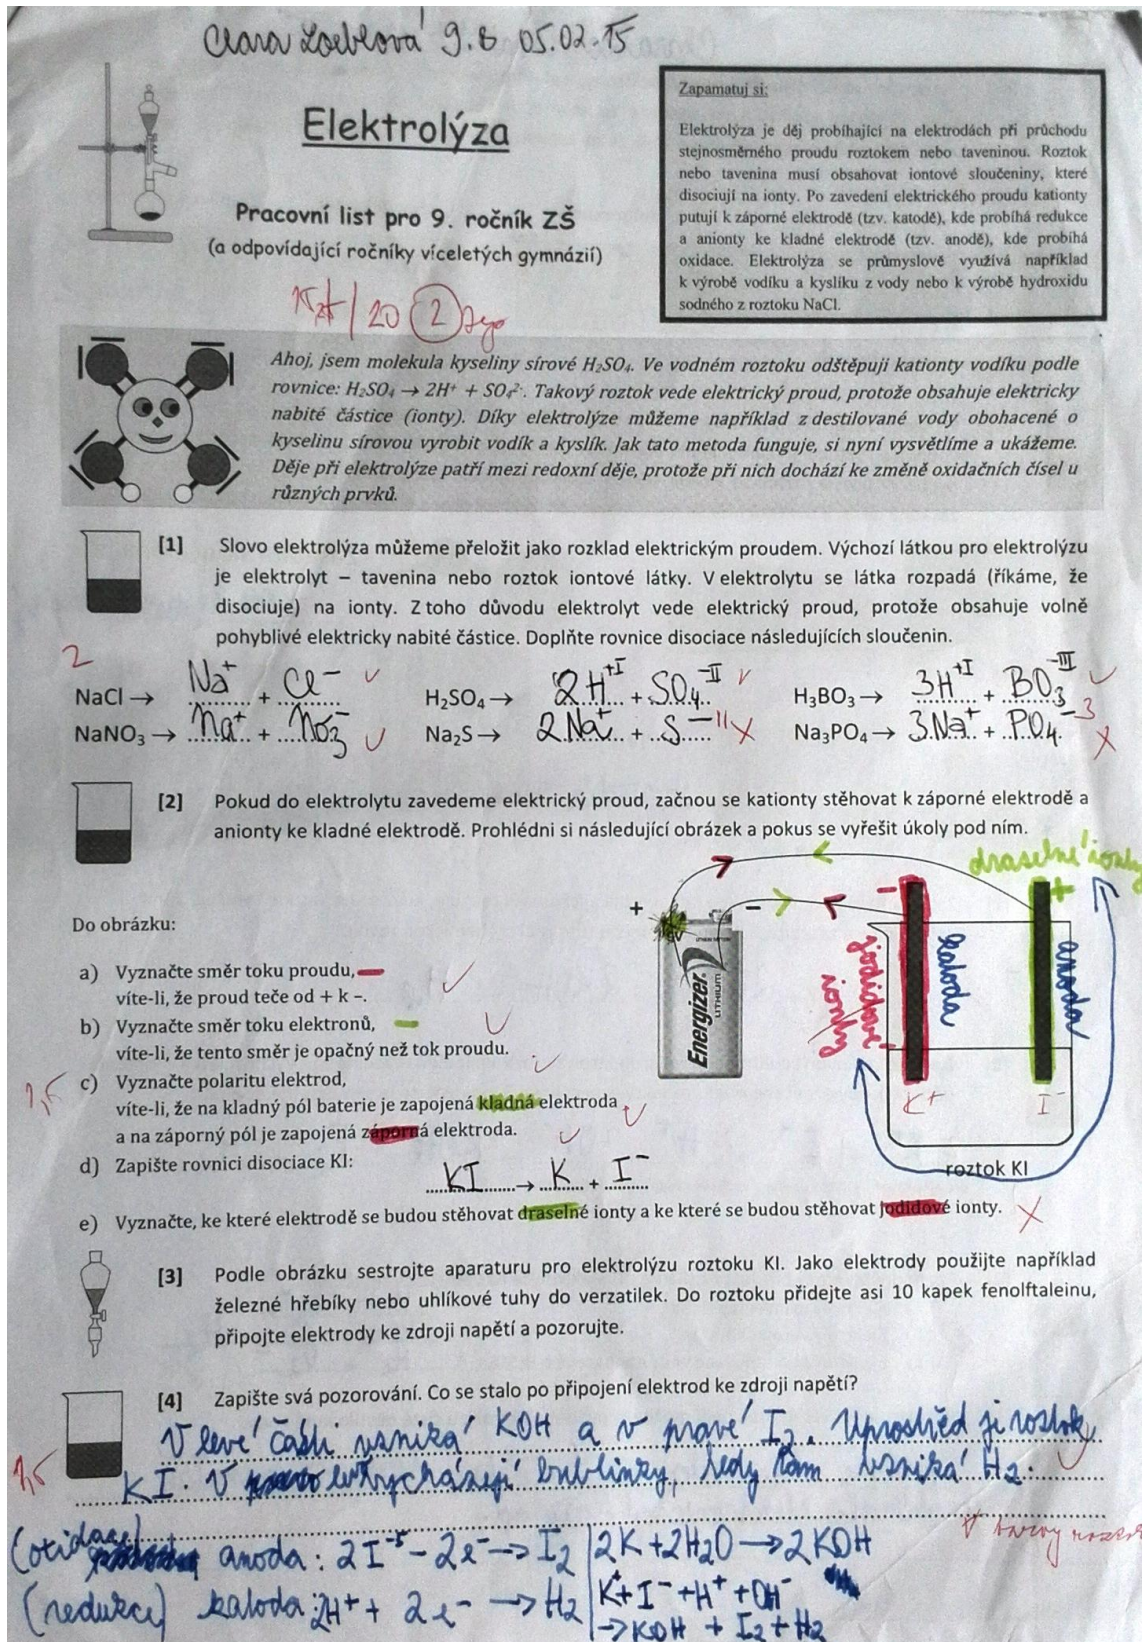 Clara Loeblová 9.B 05.02.15
Elektrolýza
Pracovní list pro 9. ročník ZŠ
(a odpovídající ročníky víceletých gymnázií)
/20 2
Zapamatuj si:
Elektrolýza je děj probíhající na elektrodách při průchodu
stejnosměrného proudu roztokem nebo taveninou. Roztok
nebo tavenina musí obsahovat iontové sloučeniny, které
disociují na ionty. Po zavedení elektrického proudu kationty
putují k záporné elektrodě (tzv. katodě), kde probíhá redukce
a anionty ke kladné elektrodě (tzv. anodě), kde probíhá
oxidace. Elektrolýza se průmyslově využívá například
k výrobě vodíku a kyslíku z vody nebo k výrobě hydroxidu
sodného z roztoku NaCl.
Ahoj, jsem molekula kyseliny sírové H₂SO₄. Ve vodném roztoku odštěpuji kationty vodíku podle
rovnice: H₂SO₄ → 2H⁺ + SO₄²⁻. Takový roztok vede elektrický proud, protože obsahuje elektricky
nabité částice (ionty). Díky elektrolýze můžeme například z destilované vody obohacené o
kyselinu sírovou vyrobit vodík a kyslík. Jak tato metoda funguje, si nyní vysvětlíme a ukážeme.
Děje při elektrolýze patří mezi redoxní děje, protože při nich dochází ke změně oxidačních čísel u
různých prvků.
[1] Slovo elektrolýza můžeme přeložit jako rozklad elektrickým proudem. Výchozí látkou pro elektrolýzu
je elektrolyt – tavenina nebo roztok iontové látky. V elektrolytu se látka rozpadá (říkáme, že
disociuje) na ionty. Z toho důvodu elektrolyt vede elektrický proud, protože obsahuje volně
pohyblivé elektricky nabité částice. Doplňte rovnice disociace následujících sloučenin.
2
NaCl → Na⁺ + Cl⁻ H₂SO₄ → 2H⁺ᴵ + SO₄⁻ᴵᴵ H₃BO₃ → 3H⁺ᴵ + BO₃⁻ᴵᴵᴵ
NaNO₃ → Na⁺ + NO₃⁻ Na₂S → 2Na⁺ + S⁻ᴵᴵ Na₃PO₄ → 3Na⁺ + PO₄⁻³
[2] Pokud do elektrolytu zavedeme elektrický proud, začnou se kationty stěhovat k záporné elektrodě a
anionty ke kladné elektrodě. Prohlédni si následující obrázek a pokus se vyřešit úkoly pod ním.
draselné ionty
+ − − +
Do obrázku:
a) Vyznačte směr toku proudu,
víte-li, že proud teče od + k –.
b) Vyznačte směr toku elektronů,
víte-li, že tento směr je opačný než tok proudu.
1,5
c) Vyznačte polaritu elektrod,
víte-li, že na kladný pól baterie je zapojená kladná elektroda
a na záporný pól je zapojená záporná elektroda.
Energizer
LITHIUM
jodidové
ionty
katoda
anoda
K⁺ I⁻
roztok KI
d) Zapište rovnici disociace KI: KI → K + I⁻
e) Vyznačte, ke které elektrodě se budou stěhovat draselné ionty a ke které se budou stěhovat jodidové ionty.
[3] Podle obrázku sestrojte aparaturu pro elektrolýzu roztoku KI. Jako elektrody použijte například
železné hřebíky nebo uhlíkové tuhy do verzatilek. Do roztoku přidejte asi 10 kapek fenolftaleinu,
připojte elektrody ke zdroji napětí a pozorujte.
[4] Zapište svá pozorování. Co se stalo po připojení elektrod ke zdroji napětí?
1,5
V levé části vzniká KOH a v pravé I₂. Uprostřed je roztok
KI. V vycházejí bublinky, tedy tam vzniká H₂.
(oxidace) anoda: 2I⁻ − 2e⁻ → I₂ | 2K + 2H₂O → 2KOH
(redukce) katoda: 2H⁺ + 2e⁻ → H₂ | K⁺ + I⁻ + H⁺ + OH⁻
→ KOH + I₂ + H₂